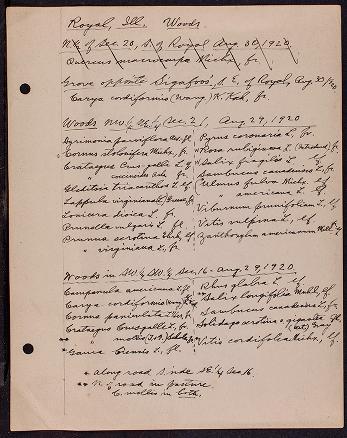 Royal, Ill. Woods.
N.½ of Sec. 20, S. of Royal Aug 30, 1920.
Quercus macrocarpa Michx, fr.
Grove opposite Sizafoos, S.E. of Royal, Aug. 30, 1920
Carya cordiformis (Wang) K. Koh, fr.
Woods NW¼ Sec. 21, Aug 29, 1920
Agrimonia parviflora Ait. fl.
* Cornus stolonifera Michx, fr.
Crataegus Crus-galli L. fr.
Gleditsia triacanthos L. lf
Lappula virginiana (L) Greene, fr.
Lonicera dioica L. fr.
Prunella vulgaris L. fl.
Prunus serotina Ehrh, lf
" virginiana L., fr.
Pyrus coronaria L., fr.
* Rosa rubiginosa L.
* Salix fragilis L. lf
Sambucus canadensis L., fr.
Ulmus fulva Michx, lf
" americana L. lf
Viburnum prunifolium L., lf
Vitis vulpina L., lf
Zanthoxylum americanum Mill. lf
Woods in SW.¼ NW.¼ Sec. 16 - Aug. 29, 1920.
Campanula americana L. fl
Carya cordiformis (Wang) K. Koh, fr
Cornus paniculata L'Her, fr.
Crataegus Crus-galli L. fr
** " mollis (T. & G.) Scheele, fr
** Gaura biennis L., fl.
Rhus glabra L. lf
* Salix longifolia Muhl, lf
Sambucus canadensis L., fr
Solidago serotina v. gigantea (Ait.) Gray fl.
* Vitis cordifolia Michx, lf
* along road side SE ¼ Sec 16.
** N. of road in pasture
C. mollis in both.